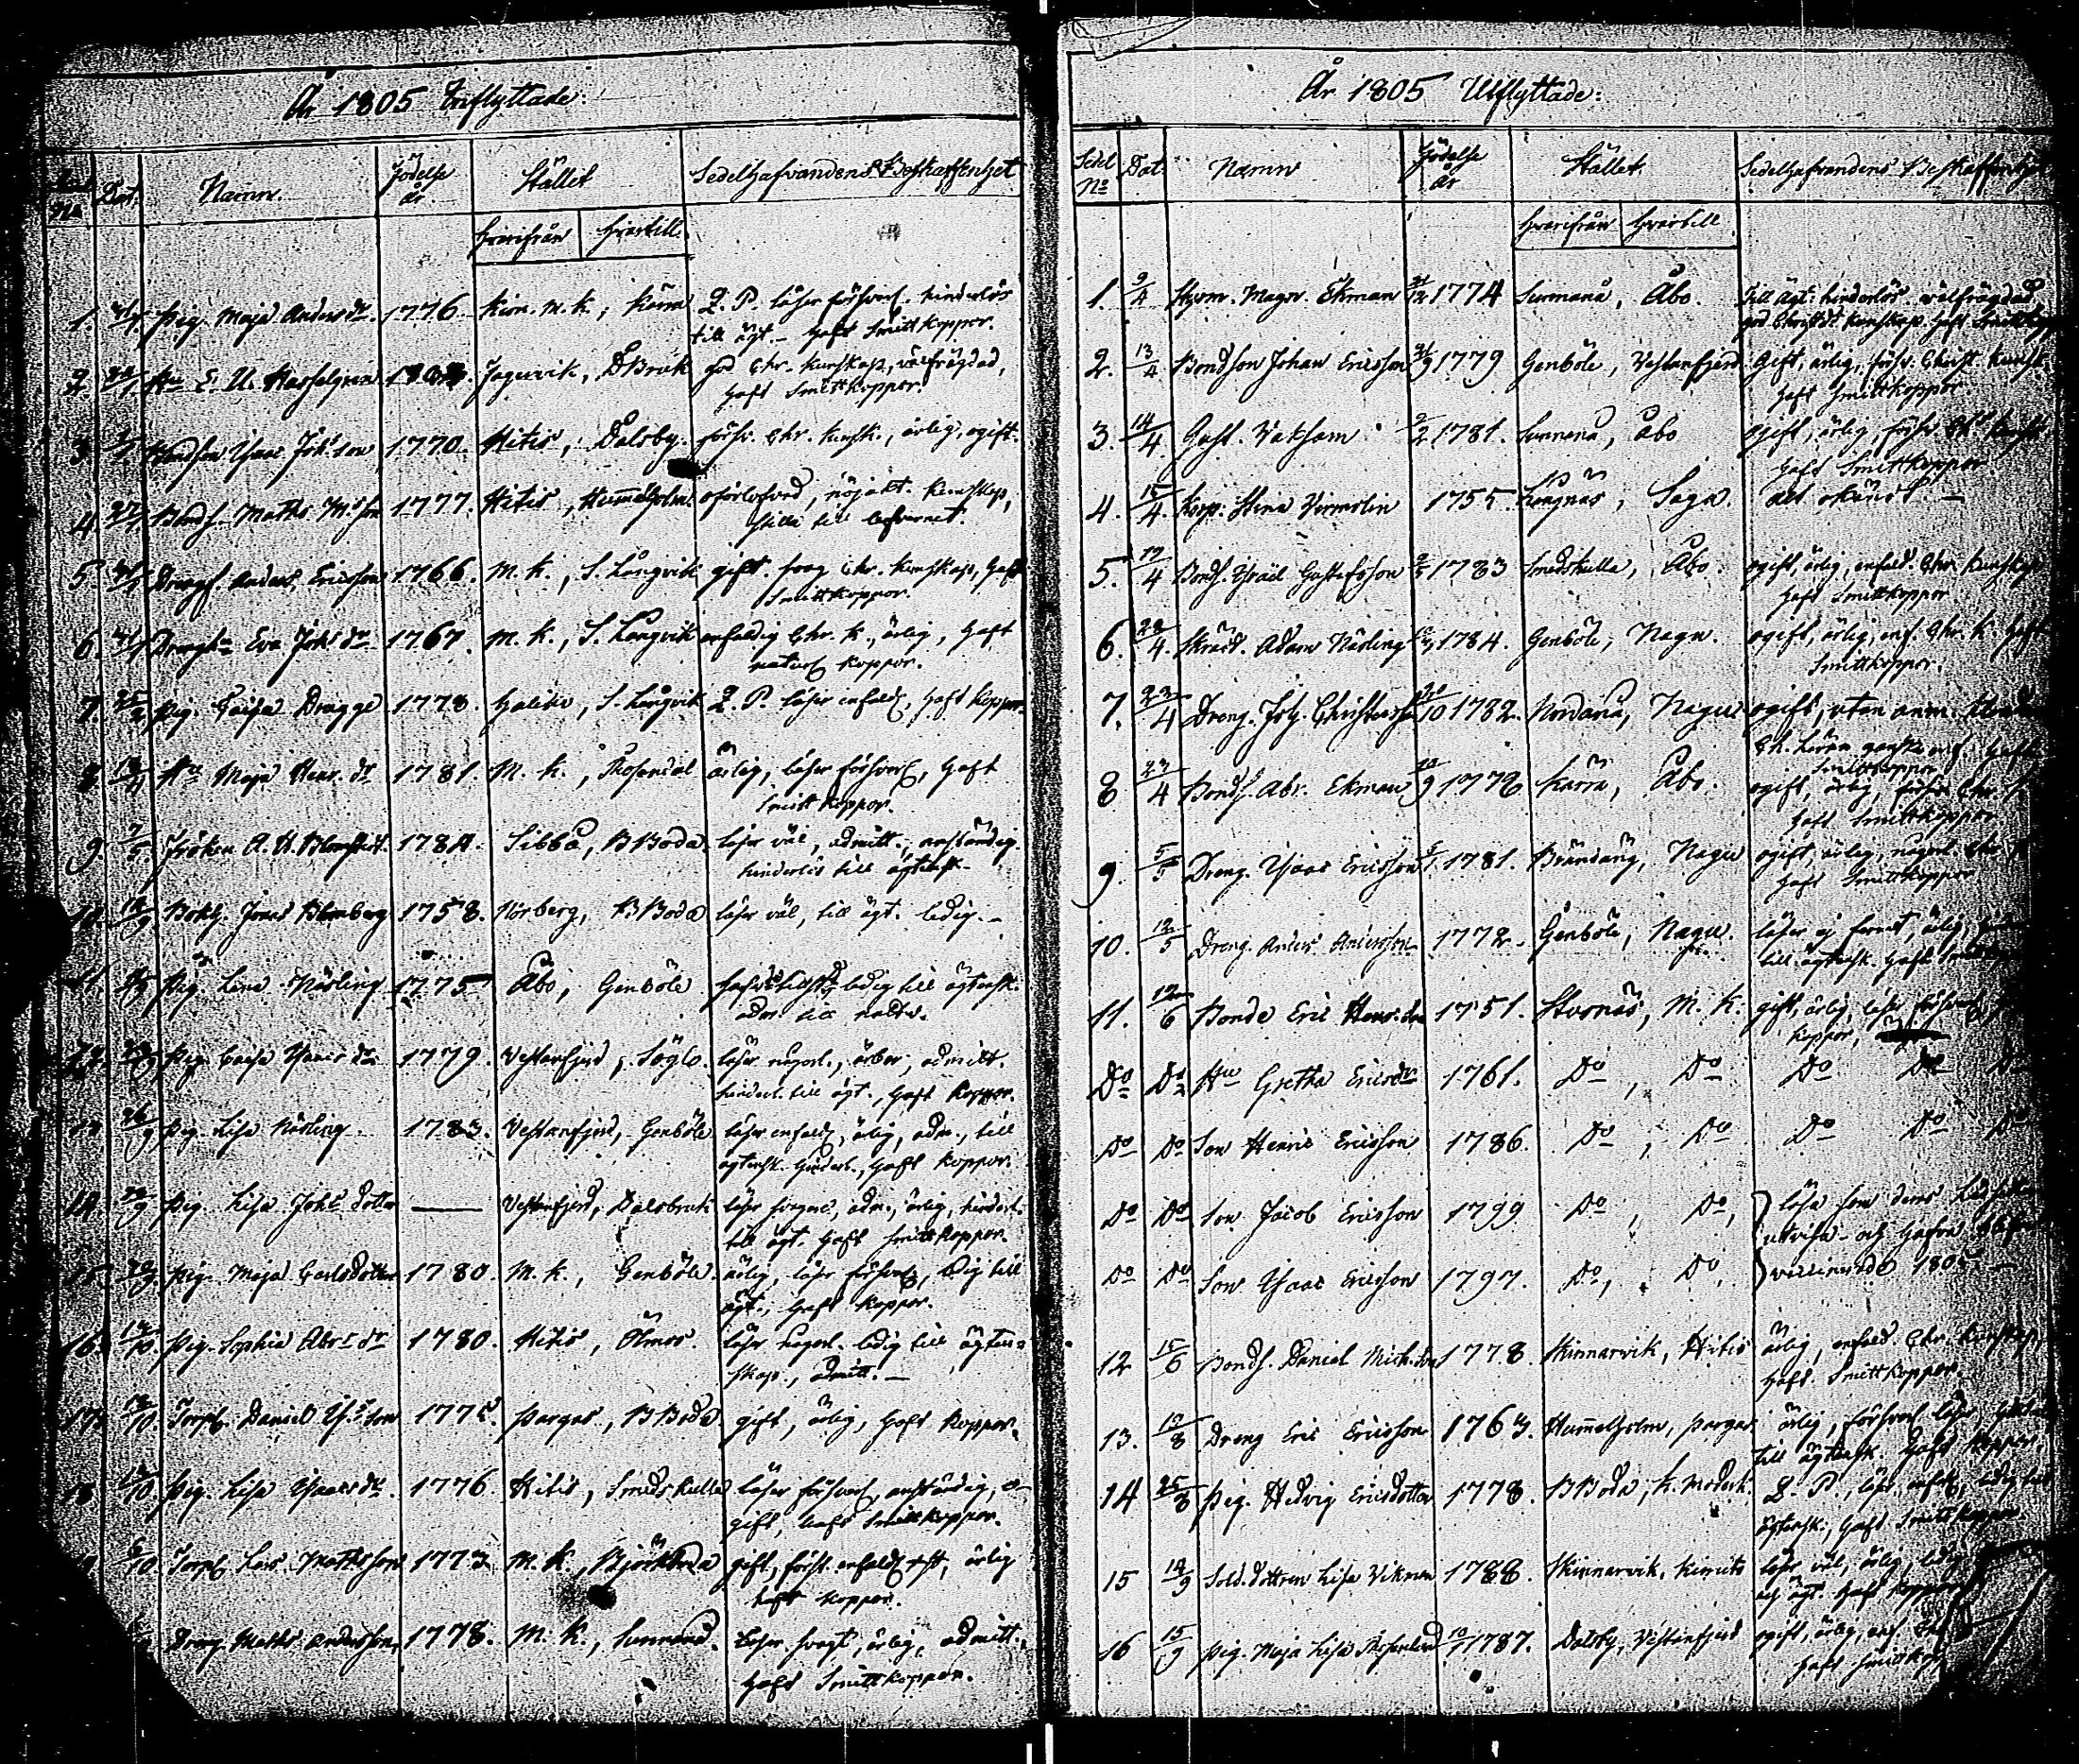 År 1805 Inflyttade:
No Dat. Namn. Födelse år. Stället Sedelhafvandens Beskaffenhet
hvarifrån hvartill
1. Pig. Maja Anders dr. 1776. Kim. m. k., Kärra L. P. läser försvarl. hinderlös
till ägt. – haft Smittkoppor.
2. Hu E. U. Hasselgren Jaguvik, DBruk god Chr. kunskap, välfrägdad,
haft Smittkoppor.
3 Bondson Isaac Joh. son 1770. Hitis, Dalsby. försv. Chr. kunsk., ärlig, ogift.
4 27/1 Bonds. Matts M:son 1777. Hitis, Hummelholm. oförlofvad, nöjakt. kunskap,
stilla till lefvernet.
5 Drengs. Anders Ericsson 1766. M. K., S. Långvik gift. svag Chr. kunskap, haft
Smittkoppor.
6 Dregh:u Eva Johs dr. 1767. M. K., S. Långvik enfaldig Chr. k., ärlig, haft
naturl. koppor.
7. Pig. Caisa Dragge 1778. Haliko, S. Långvik L. P. läser enfald., haft koppor.
8 Hu Maja Henr. dr 1781. M. K., Rosendal ärlig, läser försvarl., haft
Smittkoppor.
9. 7/5. Fröken A. U. 1784. Sibbo, BBoda. läser väl, admitt., anständig
hinderlös till ägtensk.
10. Bokh. Jonas Blomberg 1758. Norberg, BBoda läser väl, till ägt. ledig. –
11 Pig. Lena Närling 1775 Åbo, Genböle ledig till ägtensk.
adm. till nattv.
12. Pig. Caisa Isaacs dr 1779. Vestanfjerd, Söglo. läser någorl., ärbar, admitt.
hinderl. till ägt., haft koppor.
13 26/9 Pig. Lisa Närling. 1783. Vestanfjerd, Genböle läser enfald., ärlig, adm., till
ägtensk. hinderl., haft koppor.
14. Pig. Lisa Johs dotter —— Vestanfjerd, Dalsbruk läser adm., ärlig, hinderl.
till ägt. haft Smittkoppor.
15. Pig. Maja Carlsdotter 1780. M. K., Genböle. ärlig, läser försvarl., ledig till
ägt., haft koppor.
16. Pig. Sophia Abrs dr 1780. Hitis, Ölmos. läser någorl. ledig till ägten=
skap, admitt. –
17. Torp. Daniel Is. son 1775. Pargas, BBoda. gift, ärlig, haft koppor.
18 Pig. Lisa Isaacs dr. 1776. Hitis, Smedskulla läser försvarl., anständig, o-
gift, haft Smittkoppor.
6/10. Torp. Lars Mattsson 1773 M. K., Björkboda gift, först. enfald. ärlig
haft koppor.
Dreng. Matts Andersson, 1778. M. K., Sunnanå. läser svagt, ärlig, admitt.,
haft Smittkoppor.
År 1805 Utflyttade:
Sedel No Dat. Namn Födelse år Stället. Sedelhafvandens Beskaffenhet
hvarifrån hvartill
1. 9/4 Styrm. Magn. Ekman 1774 Sunnanå, Åbo. till ägt. hinderlös välfrägdad,
god Christ. kunskap. haft Smittkopp.
2. 13/4 Bondson Johan Ericsson 1779 Genböle, Vestanfjerd Gift, ärlig, försv. Christ. kunsk.
haft Smittkoppor
3. 14/4 Gast. Vaksam 9/2 1781. Sunnanå, Åbo ogift, ärlig, försv.
haft Smittkoppor
4. 15/4. Corp. Stina Virmolin 1755. Längnäs, Sagu. alt okändt. –
5. 19/4 Bonds. Israël Gustafsson 1783 Smedskulla, Åbo. ogift, ärlig, enfald. Chr. kunskap
haft Smittkoppor
6. Skräd. Adam Närling 1784. Genböle, Nagu. ogift, ärlig, enf. Chr. k. haft
Smittkoppor.
7. 23/4 Dreng. Joh. Christersson 1782. Nordanå, Nagu ogift, utan anm.
Ch. Läran ganska enf. haft
Smittkoppor
8 23/4 Bonds. Abr. Ekman 1778 Kärra, Åbo. ogift, ärlig, försv. Chr. k.
haft Smittkoppor
9. 5/5 Dreng. Isaac Ericsson 1781. Brännäng, Nagu ogift, ärlig, någorl.
haft Smittkoppor
10. 12/5 Dreng. Anders Andersson 1772. Genböle, Nagu. läser ej
till ägtensk. haft
11. 12/6 Bonde Eric Henr. son 1751. Stusnäs, M. K. gift, ärlig, läser försvarl.
koppor,
Do Do Hu Gretha Ericsdr 1761. Do, Do Do Do Do
Do Do Son Henric Ericsson 1786 Do, Do Do Do Do
Do Do Son Jacob Ericsson 1799 Do, Do, läsa som deras
utvisa – och hafva
Do Do Son Isaac Ericsson 1797. Do, Do, vaccinerade 1805. –
12 15/6 Bonds. Daniel Mich. son 1778. Skinnarvik, Hitis ärlig, enfald. Chr. kunskap,
haft Smittkoppor.
13. Dreng Eric Ericsson 1763. Hummelholm, Pargas ärlig, försvarl. läser,
till ägtensk. haft koppor.
14 25/8 Pig. Hedvig Ericsdotter 1778. BBoda, K. Moderk. L. P., läser enfald., ledig till
ägtensk., haft Smittkoppor.
15 Sold. dottren Lisa Vikman 1788. Skinnarvik, Kimito läser väl, ärlig, ledig
till ägt. haft koppor
16 15/9 Pig. Maja Lisa 1787. Dalsby, Vestanfjerd ogift, ärlig, enf.
haft Smittkopp